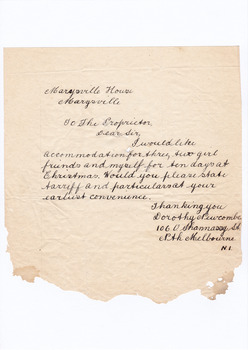 Marysville House
Marysville
To The Proprietor
Dear Sir,
I would like
accommodation for three, two girl
friends and myself for ten days at
Christmas. Would you please state
tarriff and particulars at your
earliest convenience.
Thanking you
Dorothy Newcombe
106 O'Shannassy St
Nth Melbourne
N.1.